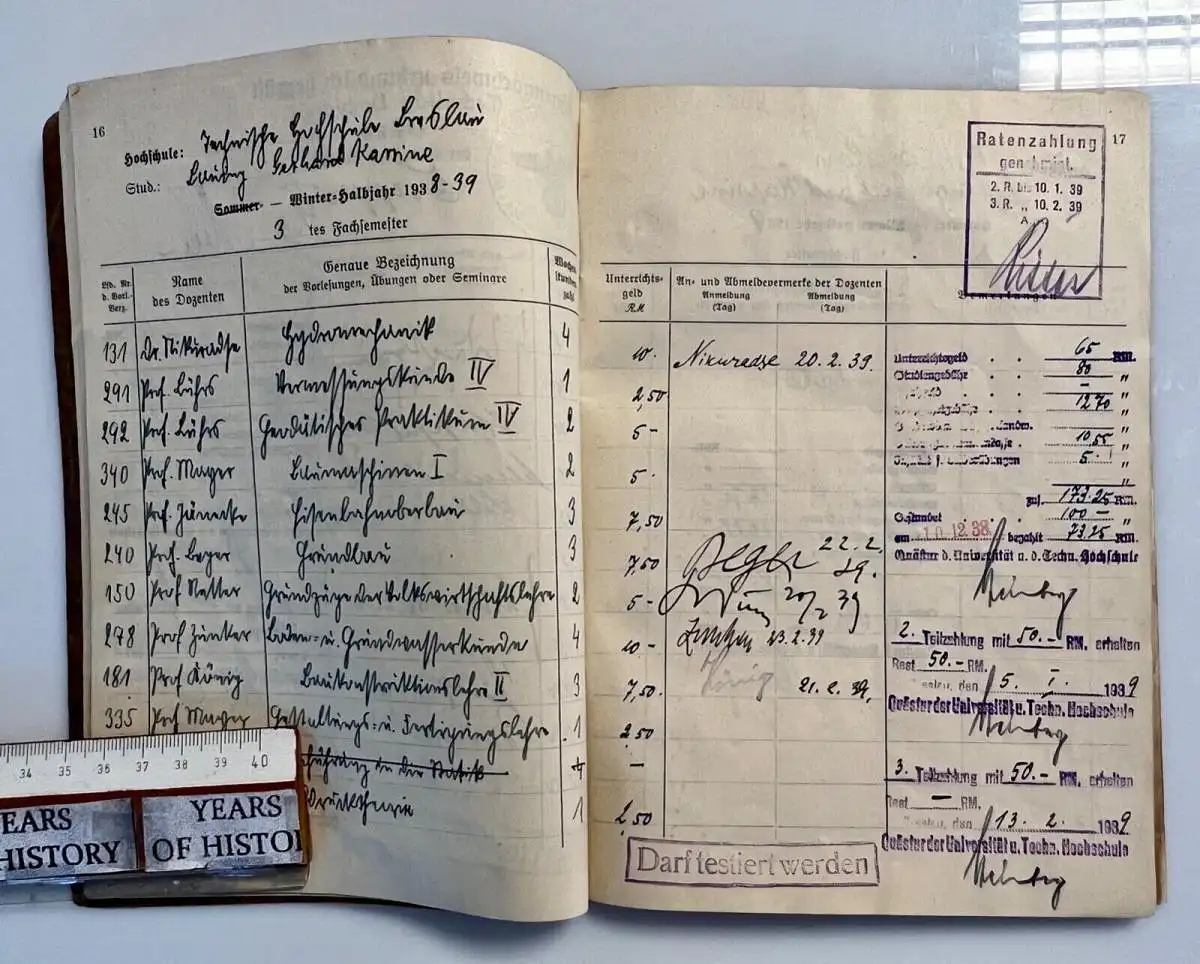 16
Hochschule: Technische Hochschule Breslau
Stud.: Gerhard
Sommer- — Winter-Halbjahr 1938-39
3 tes Fachsemester
Lfd. Nr. d. Vorl.-Verz.
Name des Dozenten
Genaue Bezeichnung der Vorlesungen, Übungen oder Seminare
Wochenstundenzahl
131 Dr. Nikuradse Hydromechanik 4
291 Prof. Lührs Vermessungskunde IV 1
292 Prof. Lührs Geodätisches Praktikum IV 2
340 Prof. Mayer Baumaschinen I 2
245 Prof. Jänecke Eisenbahnoberbau 3
240 Prof. Beger Grundbau 3
150 Prof Grundzüge der Volkswirtschaftslehre 2
278 Prof Zunker Boden- u. Grundwasserkunde 4
181 Prof König Baukonstruktionslehre II 3
335 Prof Mayer Gestaltungs- u. Fertigungslehre 1
in die Statik 4
1
34 35 36 37 38 39 40
EARS
HISTORY
YEARS
OF HISTO
17
Ratenzahlung
genehmigt.
2. R. bis 10. 1. 39
3. R. „ 10. 2. 39
Unterrichtsgeld RM
An- und Abmeldevermerke der Dozenten
Anmeldung (Tag)
Abmeldung (Tag)
Bemerkungen
10.- Nikuradse 20.2.39.
2,50
5-
5.-
7,50
7,50 Beger 22.2.39.
5- 20/2 39
10- Zunker 23.2.39
7,50. König 21.2.39.
2,50
—
2,50
Darf testiert werden
Unterrichtsgeld . . 65 RM.
Studiengebühr . . 80 „
— „
12 70 „
10,55 „
5.- „
zus. 173.25 RM.
Gestundet . 100 — „
am 10.12.38 bezahlt 73.25 RM.
Quästur d. Universität u. d. Techn. Hochschule
2. Teilzahlung mit 50.- RM. erhalten
Rest 50.- RM.
Breslau, den 5. I. 1939
Quästur der Universität u. Techn. Hochschule
3. Teilzahlung mit 50.- RM. erhalten
Rest — RM.
Breslau, den 13. 2. 1939
Quästur der Universität u. Techn. Hochschule